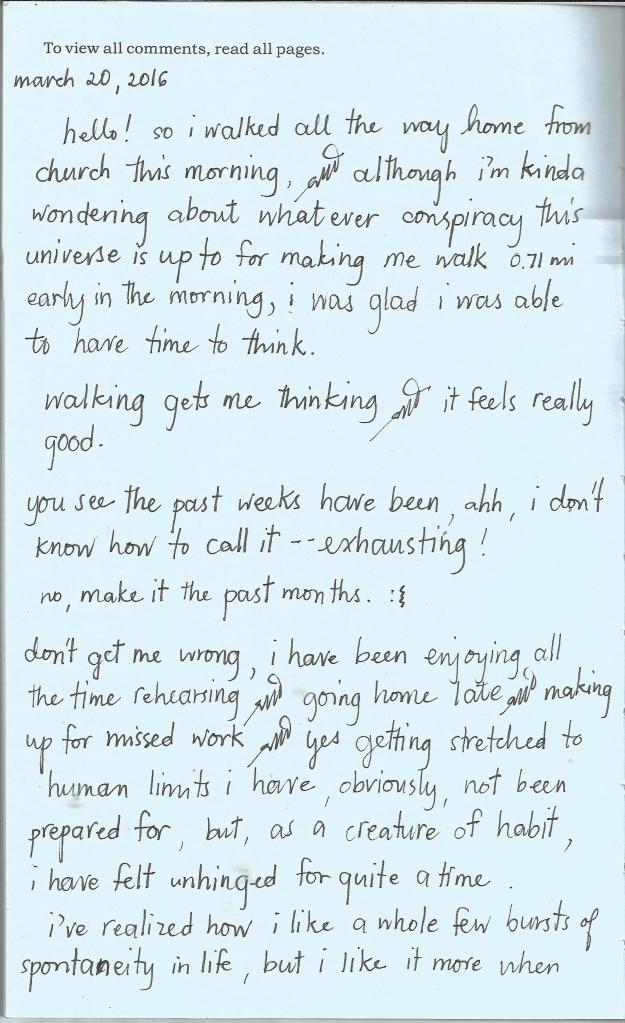 To view all comments, read all pages.
march 20, 2016
hello! so i walked all the way home from
church this morning, and although i'm kinda
wondering about what ever conspiracy this
universe is up to for making me walk 0.71 mi
early in the morning, i was glad i was able
to have time to think.
walking gets me thinking and it feels really
good.
you see the past weeks have been, ahh, i don't
know how to call it -- exhausting!
no, make it the past months. :{
don't get me wrong, i have been enjoying all
the time rehearsing and going home late and making
up for missed work and yes getting stretched to
human limits i have, obviously, not been
prepared for, but, as a creature of habit,
i have felt unhinged for quite a time.
i've realized how i like a whole few bursts of
spontaneity in life, but i like it more when